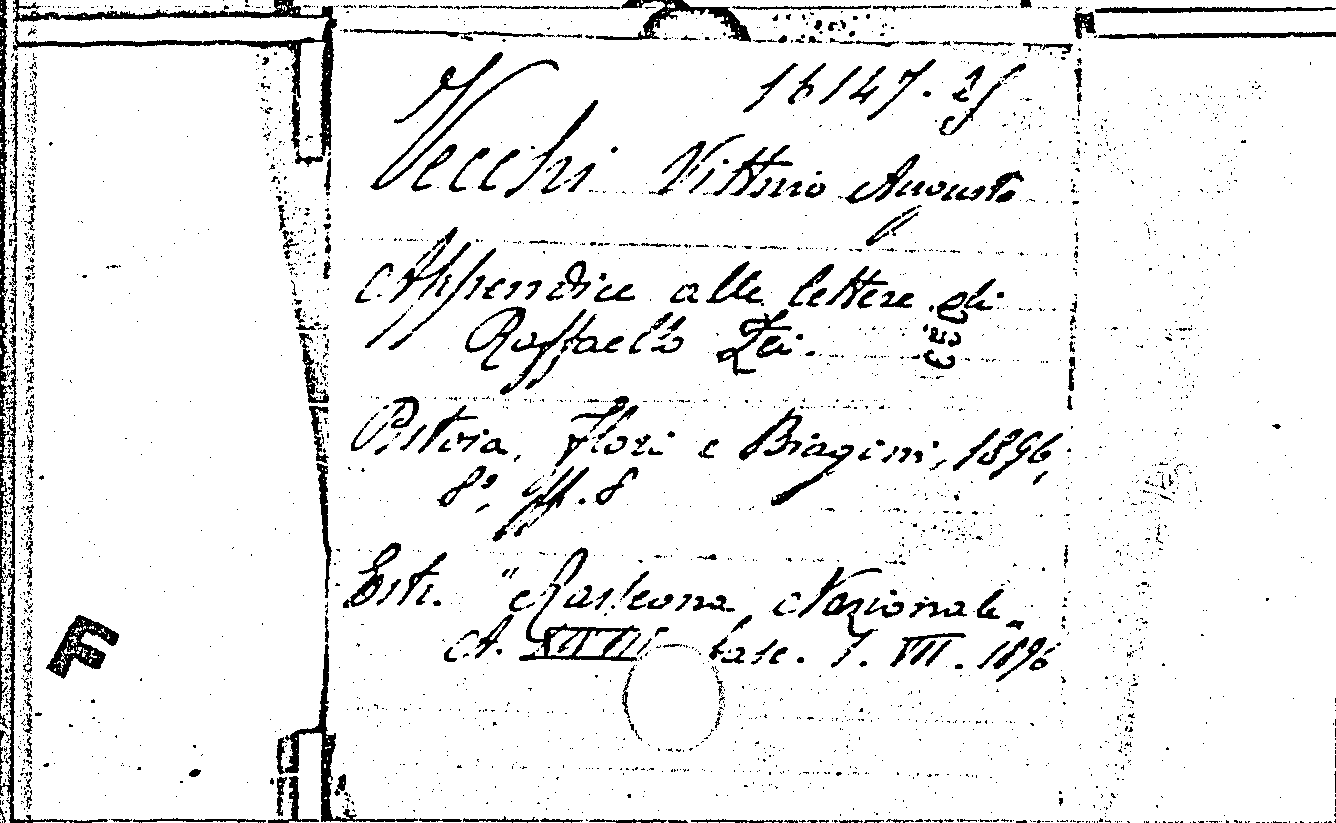 16147.25
Vecchi Vittorio Augusto
Appendice alle lettere di
Raffaello Zei.
Pistoia, Flori e Biagini, 1896,
8°, pp. 8
Estr. "Rassegna Nazionale"
A. XVIII fasc. 1. VII. 1896
F